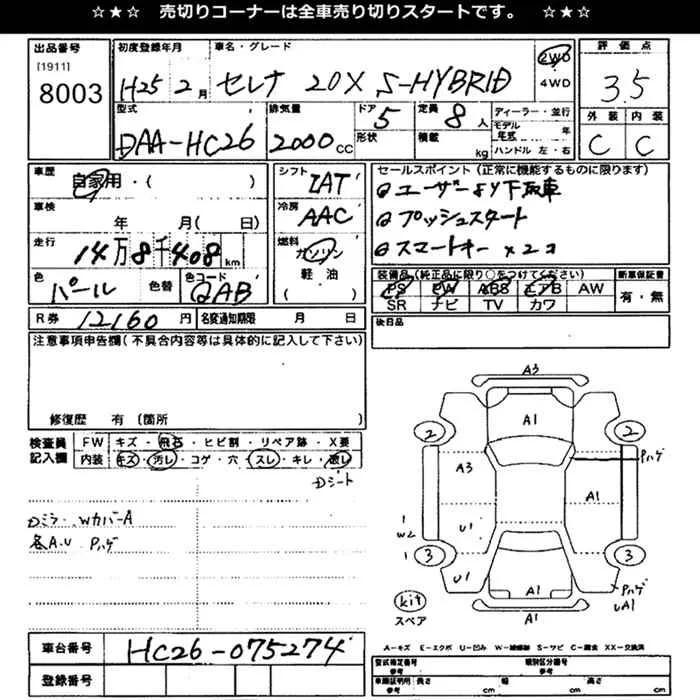 ☆★☆ 売切りコーナーは全車売り切りスタートです。 ☆★☆
出品番号
[1911]
8003
初度登録年月
H25年 2月
車名・グレード
セレナ 20X S-HYBRID
2WD
4WD
評価点
3.5
型式
DAA-HC26
排気量
2000cc
ドア 5
形状
定員 8人
積載 kg
ディーラー・並行
モデル年式 年
ハンドル 左・右
外装 内装
C C
車歴
自家用・( )
車検
年 月( 日)
走行
14万8千408km
色
パール
色替
色コード
QAB
シフト
IAT
冷房
AAC
燃料
ガソリン
軽油
( )
セールスポイント(正常に機能するものに限ります)
ユーザーより下取車
プッシュスタート
スマートキー×2コ
装備品(純正品に限り○をつけてください)
PS PW ABS エアB AW
SR ナビ TV カワ
新車保証書
有・無
R券 12160円
名変通知期限 月 日
後日品
注意事項申告欄(不具合内容等は具体的に記入して下さい)
修復歴 有(箇所
検査員記入欄
FW キズ・飛石・ヒビ割・リペア跡・X要
内装 キズ・汚レ・コゲ・穴・スレ・キレ・
Dシート
Dミラ-WカバーA
各A.U Pハゲ
A3
A1
2
2
A3
Pハゲ
A1
U1
1
W2
1
3
3
U1
A1
Pハゲ
UA1
A1
kit
スペア
車台番号
HC26-075274
登録番号
A-キズ E-エクボ U-凹ミ W-補修跡 S-サビ C-腐食 XX-交換済
型式指定番号
参考
類別区分番号
参考
車庫証明用
参考
長さ cm 幅 cm 高さ cm